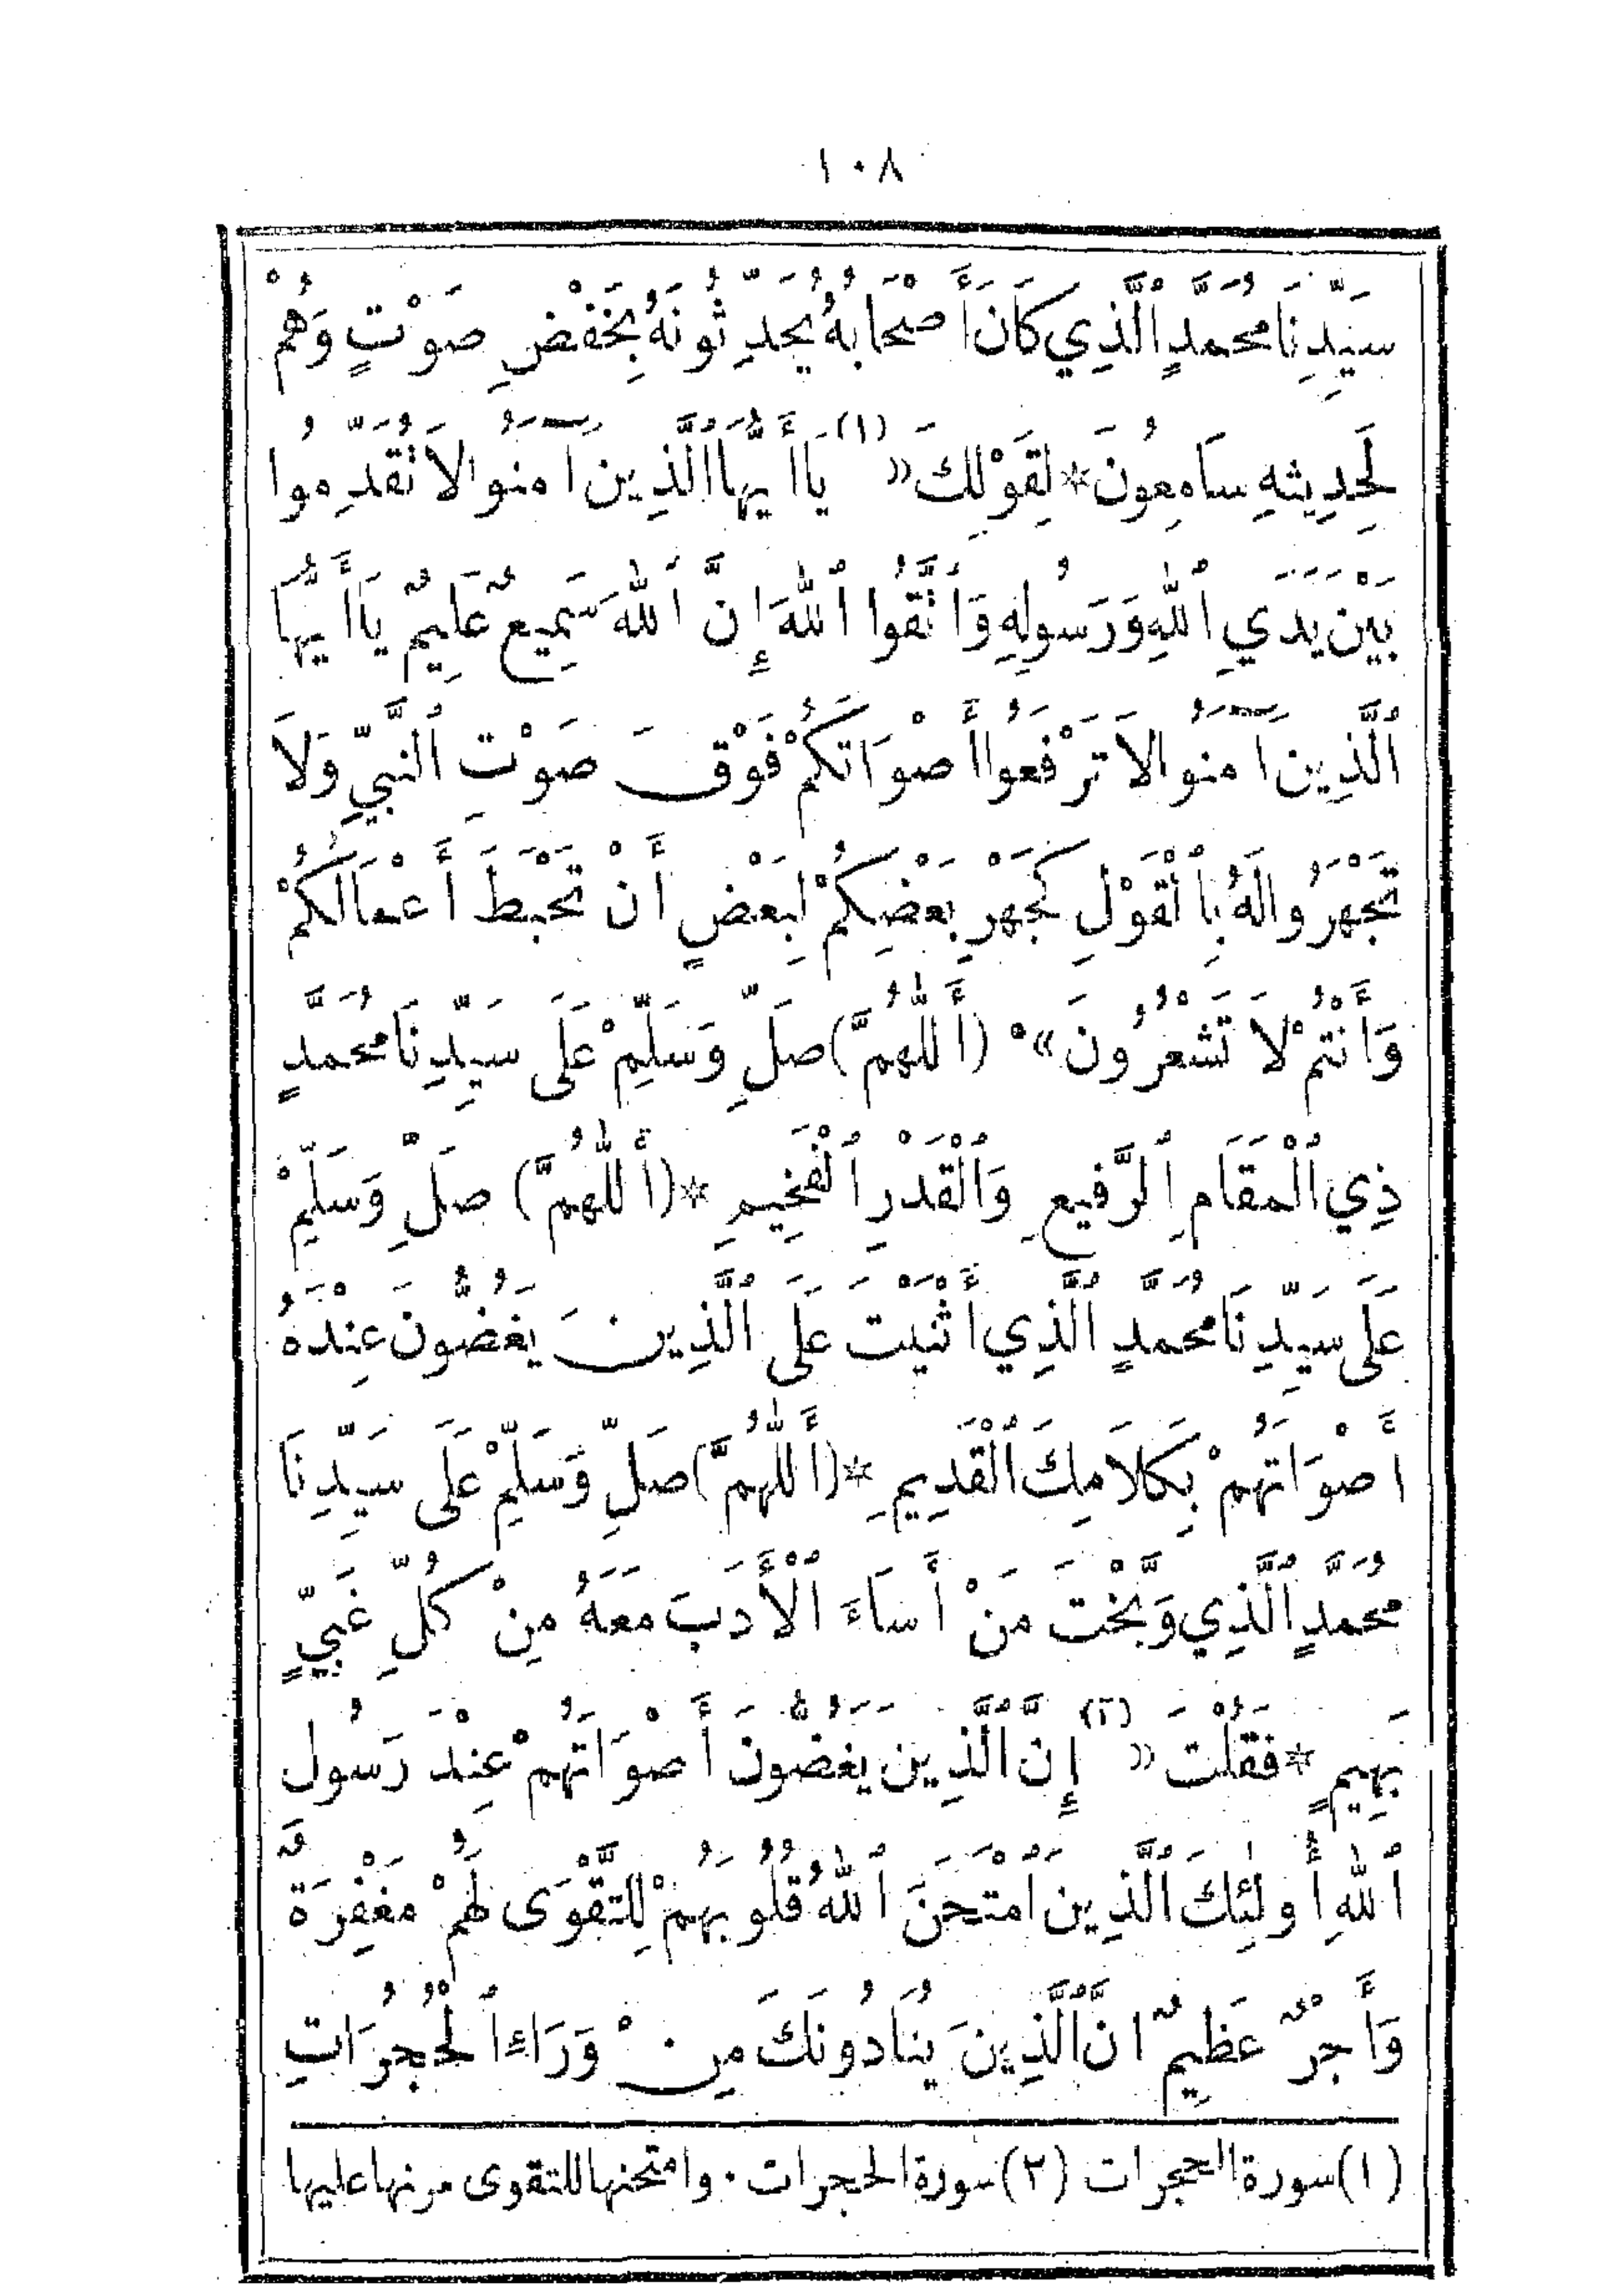 ١٠٨
سَيِّدِنَا مُحَمَّدٍ ٱلَّذِي كَانَ أَصْحَابُهُ يُحَدِّثُونَهُ بِخَفْضِ صَوْتٍ وَهُمْ
لِحَدِيثِهِ سَامِعُونَ * لِقَوْلِكَ «(١) يَا أَيُّهَا ٱلَّذِينَ آمَنُوا لَا تُقَدِّمُوا
بَيْنَ يَدَيِ ٱللهِ وَرَسُولِهِ وَٱتَّقُوا ٱللهَ إِنَّ ٱللهَ سَمِيعٌ عَلِيمٌ يَا أَيُّهَا
ٱلَّذِينَ آمَنُوا لَا تَرْفَعُوا أَصْوَاتَكُمْ فَوْقَ صَوْتِ ٱلنَّبِيِّ وَلَا
تَجْهَرُوا لَهُ بِٱلْقَوْلِ كَجَهْرِ بَعْضِكُمْ لِبَعْضٍ أَنْ تَحْبَطَ أَعْمَالُكُمْ
وَأَنْتُمْ لَا تَشْعُرُونَ»° (أَللّٰهُمَّ) صَلِّ وَسَلِّمْ عَلَى سَيِّدِنَا مُحَمَّدٍ
ذِي ٱلْمَقَامِ ٱلرَّفِيعِ وَٱلْقَدْرِ ٱلْفَخِيمِ * (أَللّٰهُمَّ) صَلِّ وَسَلِّمْ
عَلَى سَيِّدِنَا مُحَمَّدٍ ٱلَّذِي أَثْنَيْتَ عَلَى ٱلَّذِينَ يَغُضُّونَ عِنْدَهُ
أَصْوَاتَهُمْ بِكَلَامِكَ ٱلْقَدِيمِ * (أَللّٰهُمَّ) صَلِّ وَسَلِّمْ عَلَى سَيِّدِنَا
مُحَمَّدٍ ٱلَّذِي وَبَّخْتَ مَنْ أَسَاءَ ٱلْأَدَبَ مَعَهُ مِنْ كُلِّ غَبِيٍّ
بَهِيمٍ * فَقُلْتَ «(٢) إِنَّ ٱلَّذِينَ يَغُضُّونَ أَصْوَاتَهُمْ عِنْدَ رَسُولِ
ٱللهِ أُولٰئِكَ ٱلَّذِينَ ٱمْتَحَنَ ٱللهُ قُلُوبَهُمْ لِلتَّقْوَى لَهُمْ مَغْفِرَةٌ
وَأَجْرٌ عَظِيمٌ انَّ ٱلَّذِينَ يُنَادُونَكَ مِنْ وَرَاءِ ٱلْحُجُرَاتِ
(١) سورة الحجرات (٢) سورة الحجرات. وامتحنها للتقوى مرنها عليها